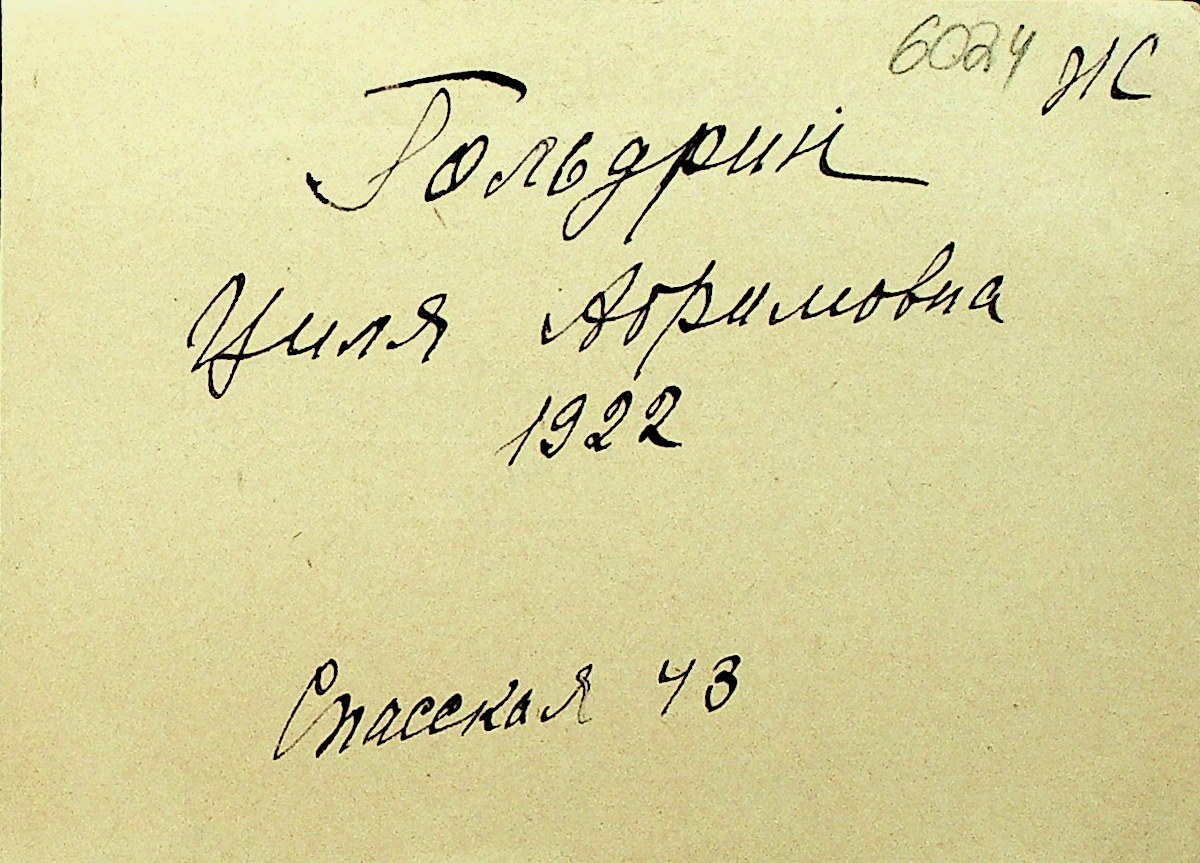 6024 Ж
Гольдрин
Циля Абрамовна
1922
Спасская 43